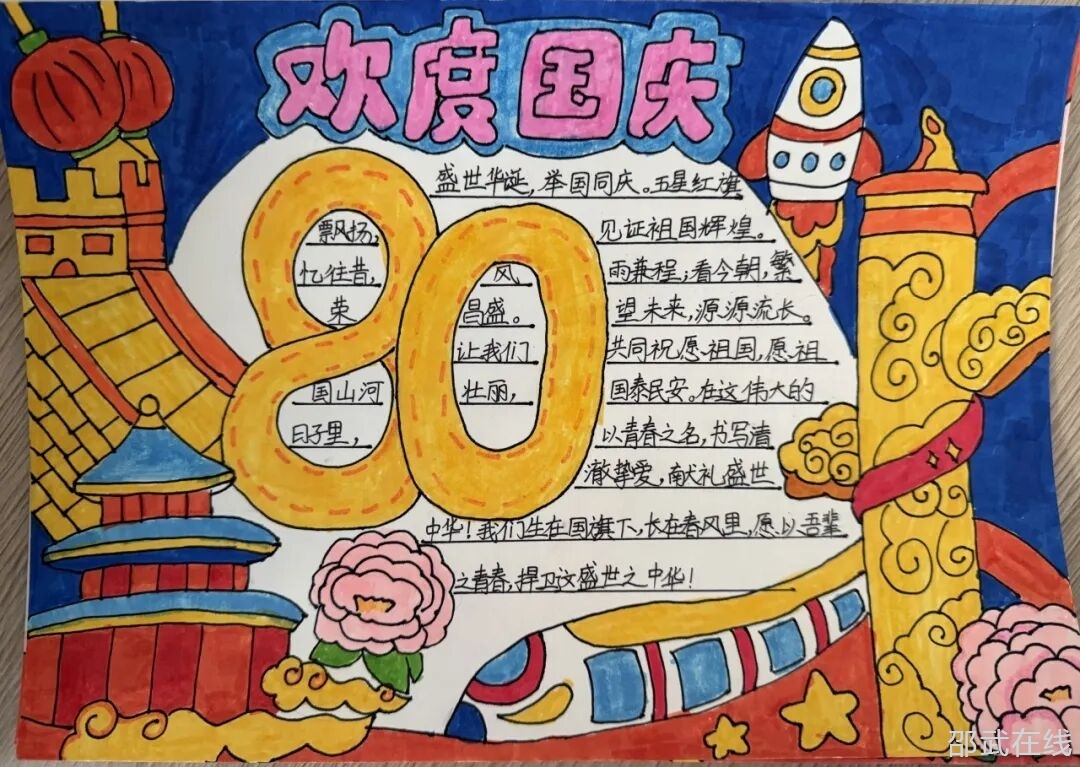 欢度国庆
盛世华诞，举国同庆。五星红旗
飘扬，见证祖国辉煌。
忆往昔，风雨兼程；看今朝，繁
荣昌盛。望未来，源源流长。
让我们共同祝愿祖国，愿祖
国山河壮丽，国泰民安。在这伟大的
日子里，以青春之名，书写清
澈挚爱，献礼盛世
中华！我们生在国旗下，长在春风里，愿以吾辈
之青春，捍卫这盛世之中华！
80
邵武在线